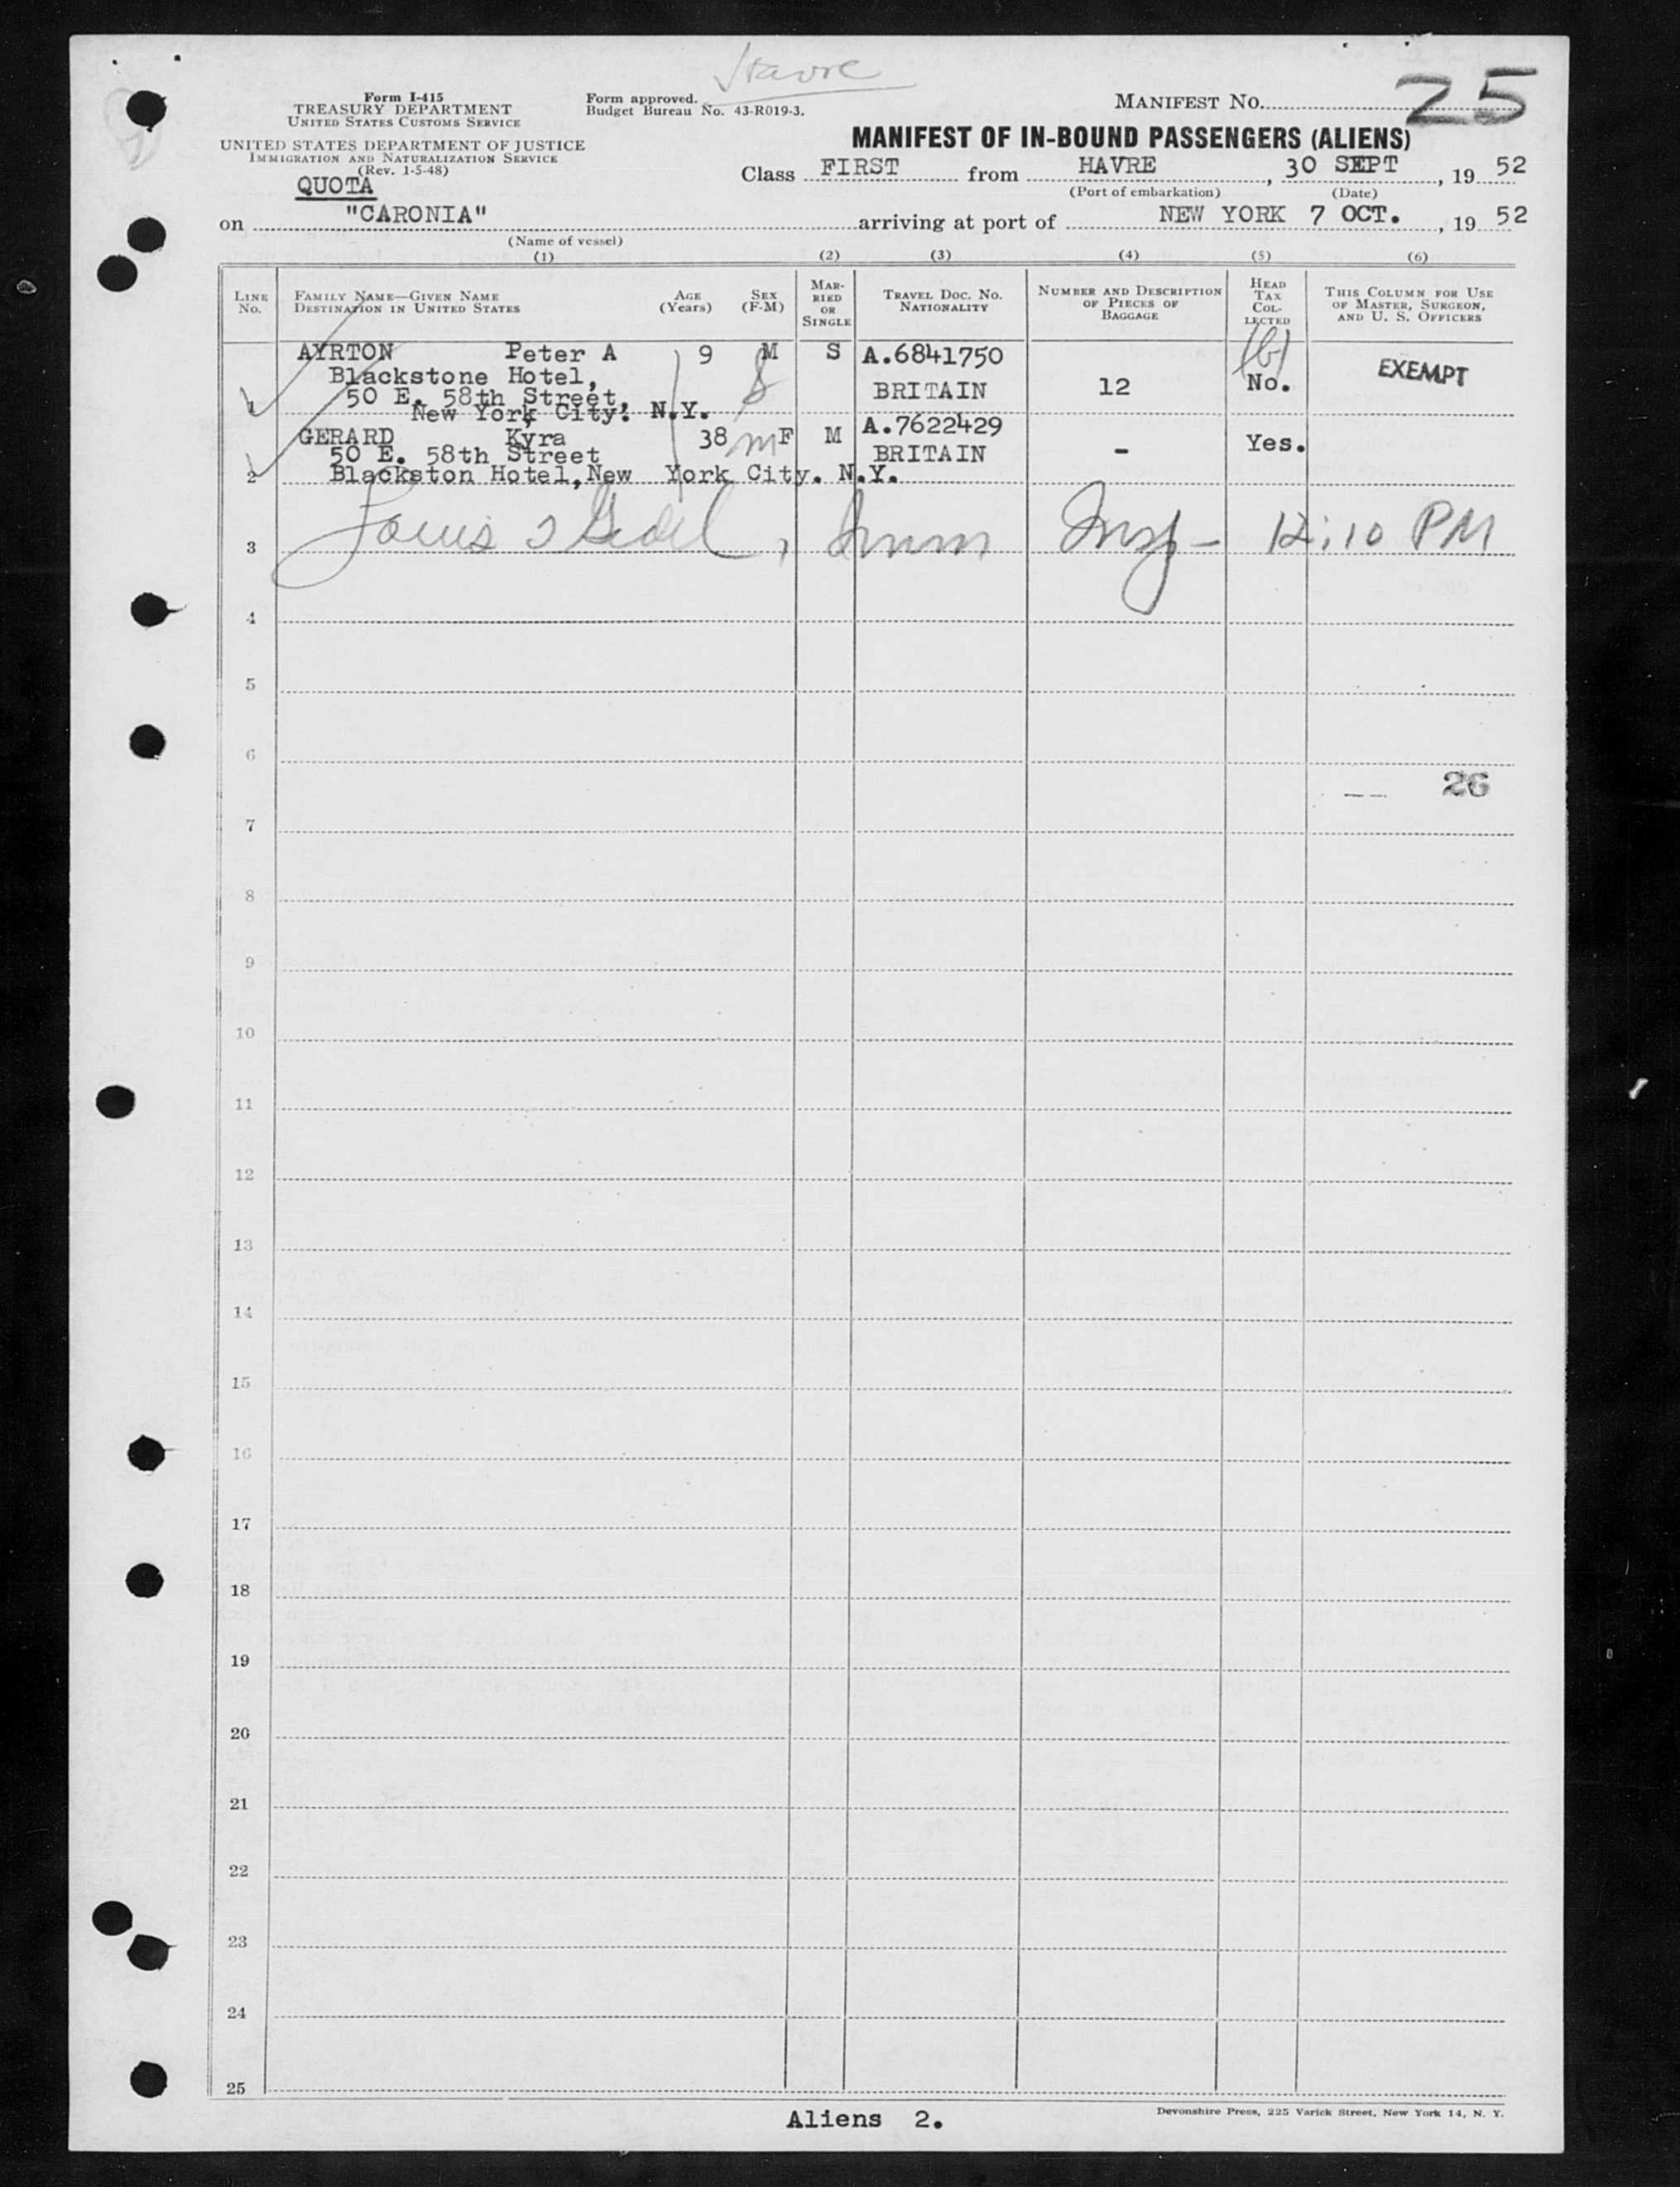 Havre
Form I-415
TREASURY DEPARTMENT
UNITED STATES CUSTOMS SERVICE
UNITED STATES DEPARTMENT OF JUSTICE
IMMIGRATION AND NATURALIZATION SERVICE
(Rev. 1-5-48)
Form approved.
Budget Bureau No. 43-R019-3.
MANIFEST NO. 25
MANIFEST OF IN-BOUND PASSENGERS (ALIENS)
QUOTA
Class FIRST from HAVRE, 30 SEPT, 19 52
(Port of embarkation) (Date)
on "CARONIA" arriving at port of NEW YORK 7 OCT., 19 52
(Name of vessel)
(1) (2) (3) (4) (5) (6)
LINE NO.
FAMILY NAME—GIVEN NAME
DESTINATION IN UNITED STATES
AGE (Years)
SEX (F-M)
MARRIED OR SINGLE
TRAVEL DOC. NO.
NATIONALITY
NUMBER AND DESCRIPTION OF PIECES OF BAGGAGE
HEAD TAX COLLECTED
THIS COLUMN FOR USE OF MASTER, SURGEON, AND U. S. OFFICERS
AYRTON Peter A 9 M S A.6841750 (6) EXEMPT
Blackstone Hotel, BRITAIN 12 No.
50 E. 58th Street,
1 New York City. N.Y.
GERARD Kyra 38 m F M A.7622429 Yes.
50 E. 58th Street BRITAIN -
2 Blackston Hotel, New York City. N.Y.
3 Louis Imm Insp - 12:10 PM
4
5
6
26
7
8
9
10
11
12
13
14
15
16
17
18
19
20
21
22
23
24
25
Aliens 2.
Devonshire Press, 225 Varick Street, New York 14, N. Y.